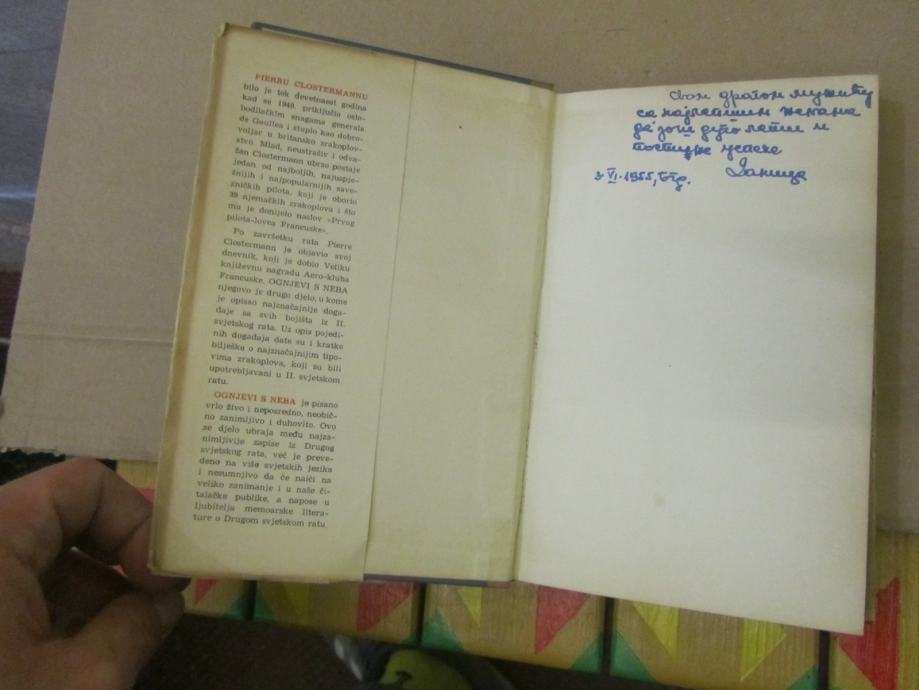 PIERRU CLOSTERMANNU
bilo je tek devetnaest godina
kad se 1940. priključio oslo-
bodilačkim snagama generala
de Gaullea i stupio kao dobro-
voljac u britansko zrakoplov-
stvo. Mlad, neustrašiv i odva-
žan Clostermann ubrzo postaje
jedan od najboljih, najuspje-
šnijih i najpopularnijih save-
zničkih pilota, koji je oborio
39 njemačkih zrakoplova i što
mu je donijelo naslov »Prvog
pilota-lovca Francuske«.
Po završetku rata Pierre
Clostermann je objavio svoj
dnevnik, koji je dobio Veliku
književnu nagradu Aero-kluba
Francuske. OGNJEVI S NEBA
njegovo je drugo djelo, u kome
je opisao najznačajnije doga-
đaje sa svih bojišta iz II.
svjetskog rata. Uz opis pojedi-
nih događaja date su i kratke
bilješke o najznačajnijim tipo-
vima zrakoplova, koji su bili
upotrebljavani u II. svjetskom
ratu.
OGNJEVI S NEBA je pisano
vrlo živo i neposredno, neobič-
no zanimljivo i duhovito. Ovo
se djelo ubraja među najza-
nimljivije zapise iz Drugog
svjetskog rata, već je preve-
deno na više svjetskih jezika
i nesumnjivo da će naići na
veliko zanimanje i u naše či-
talačke publike, a napose u
ljubitelja memoarske litera-
ture o Drugom svjetskom ratu.
Свом драгом мужићу
са најлепшим жељама
да још дуго лети и
постигне успехе
Даница
2 VI. 1955, Бгд.